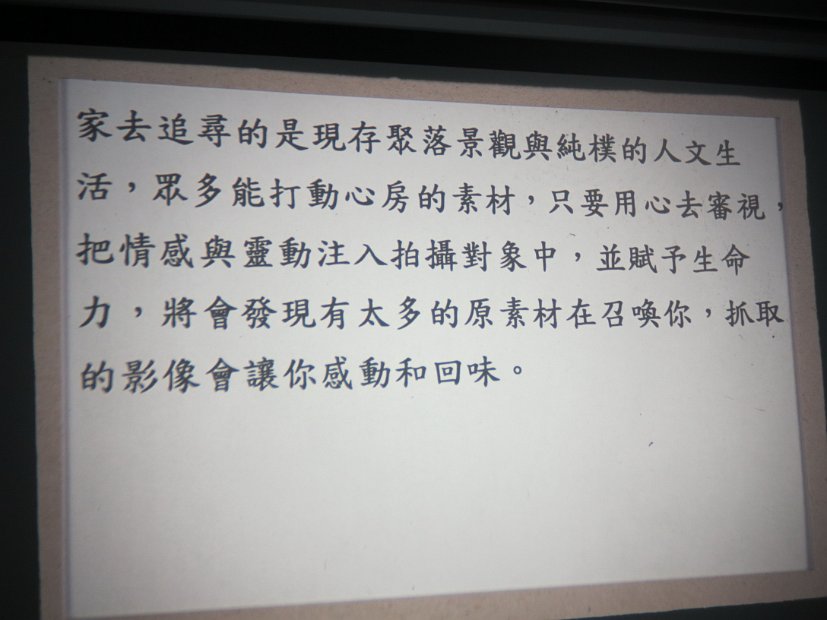 家去追尋的是現存聚落景觀與純樸的人文生
活，眾多能打動心房的素材，只要用心去審視，
把情感與靈動注入拍攝對象中，並賦予生命
力，將會發現有太多的原素材在召喚你，抓取
的影像會讓你感動和回味。